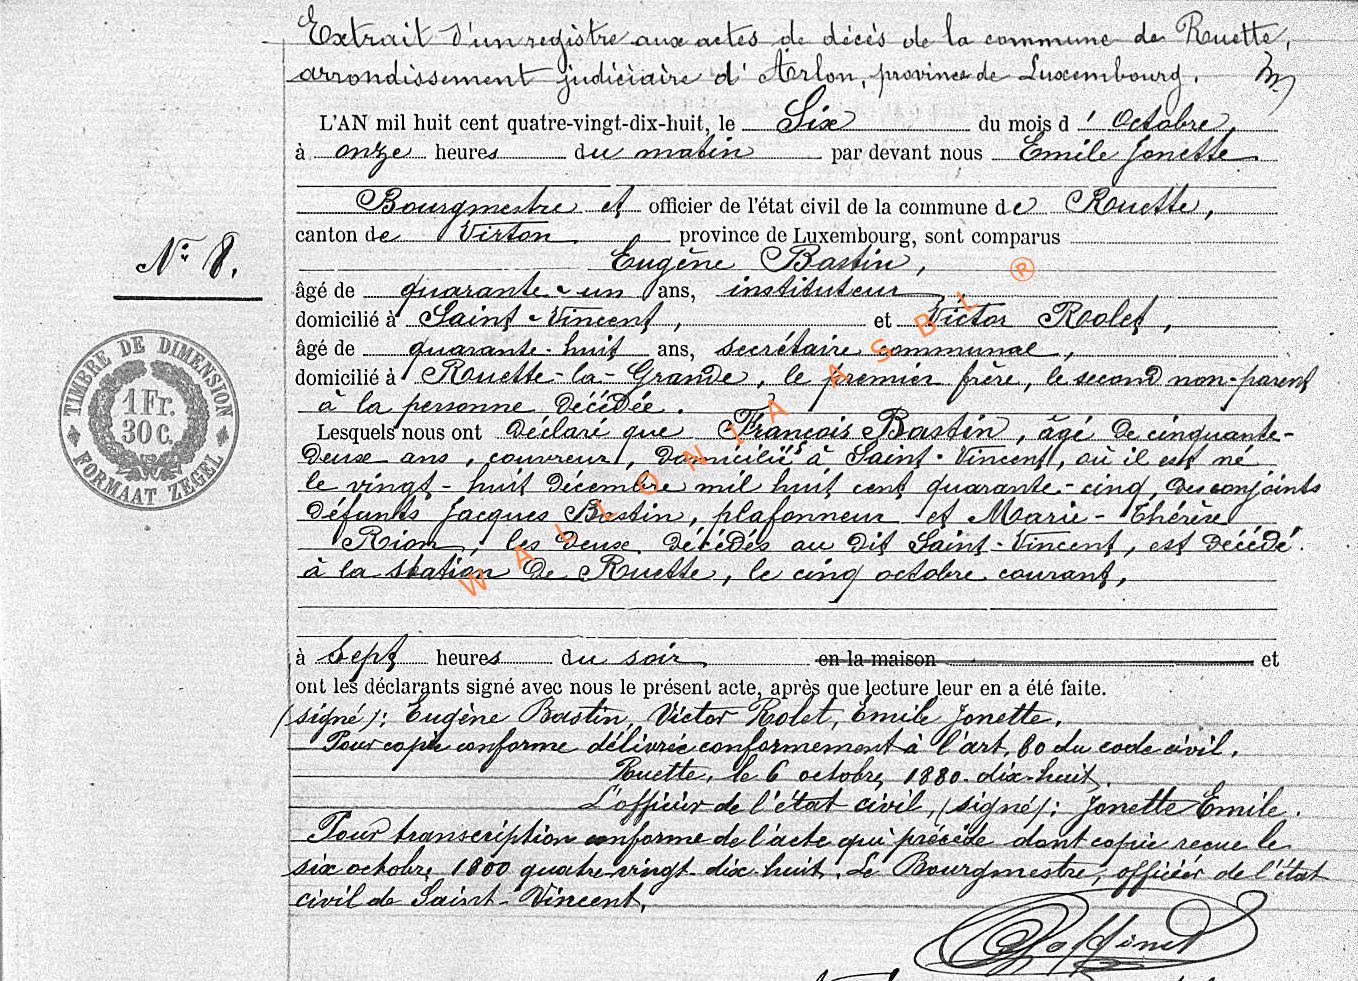 Extrait d'un registre aux actes de décès de la commune de Ruette,
arrondissement judiciaire d'Arlon, province de Luxembourg.
L'AN mil huit cent quatre-vingt-dix-huit, le Six du mois d' Octobre,
à onze heures du matin par devant nous Emile Jonette
Bourgmestre et officier de l'état civil de la commune de Ruette,
canton de Virton province de Luxembourg, sont comparus
Eugène Bastin,
âgé de quarante-un ans, instituteur
domicilié à Saint-Vincent, et Victor Rolet,
âgé de quarante-huit ans, secrétaire communal,
domicilié à Ruette-la-Grande, le premier frère, le second non-parent
à la personne décédée.
Lesquels nous ont déclaré que François Bastin, âgé de cinquante-
deux ans, couvreur, domicilié à Saint-Vincent, où il est né
le vingt-huit décembre mil huit cent quarante-cinq, des conjoints
défunts Jacques Bastin, plafonneur et Marie-Thérèse
Rion, les deux décédés au dit Saint-Vincent, est décédé
à la station de Ruette, le cinq octobre courant,
à sept heures du soir en la maison et
ont les déclarants signé avec nous le présent acte, après que lecture leur en a été faite.
(signé): Eugène Bastin, Victor Rolet, Emile Jonette.
Pour copie conforme délivrée conformement à l'art, 80 du code civil.
Ruette, le 6 octobre 1880-dix-huit.
L'officier de l'état civil, (signé): Jonette Emile.
Pour transcription conforme de l'acte qui précède dont copie reçue le
six octobre 1800 quatre-vingt-dix-huit. Le Bourgmestre, officier de l'état
civil de Saint-Vincent,
N° 8.
TIMBRE DE DIMENSION
1 Fr.
30 C.
FORMAAT ZEGEL
WALLONIA ASBL ®